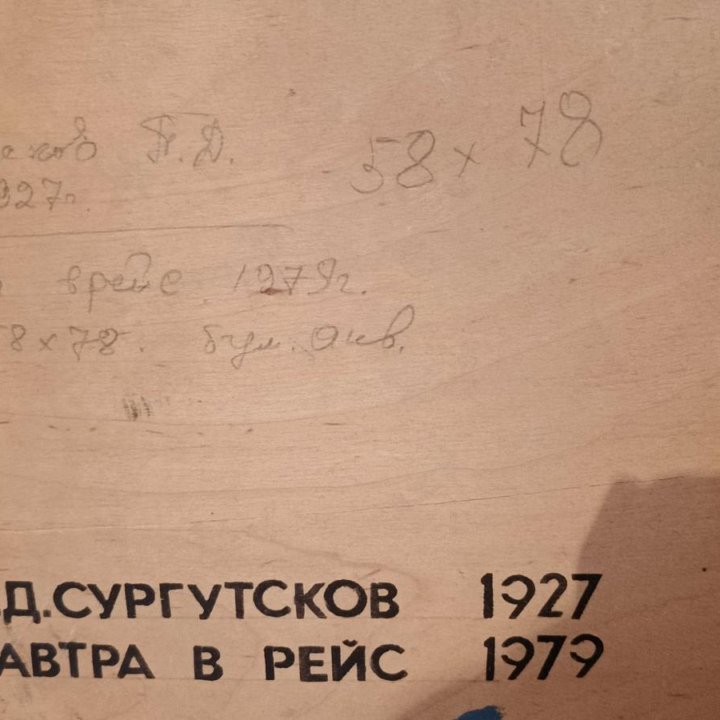 ков П.Д. 58 x 78
927г.
врейс 1979г.
58x78. бум. акв.
.Д.СУРГУТСКОВ 1927
АВТРА В РЕЙС 1979